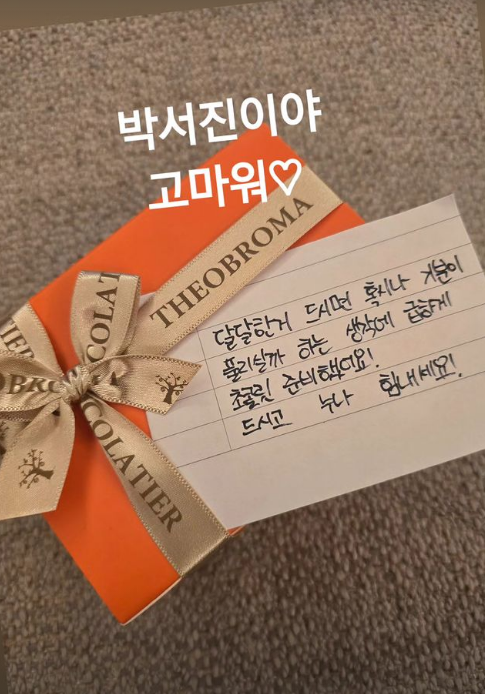 박서진이야
고마워♡
THEOBROMA
COLAT
CHOCOLATIER
달달한거 드시면 혹시나 기분이
풀리실까 하는 생각에 급하게
초콜릿 준비했어요!
드시고 누나 힘내세요!